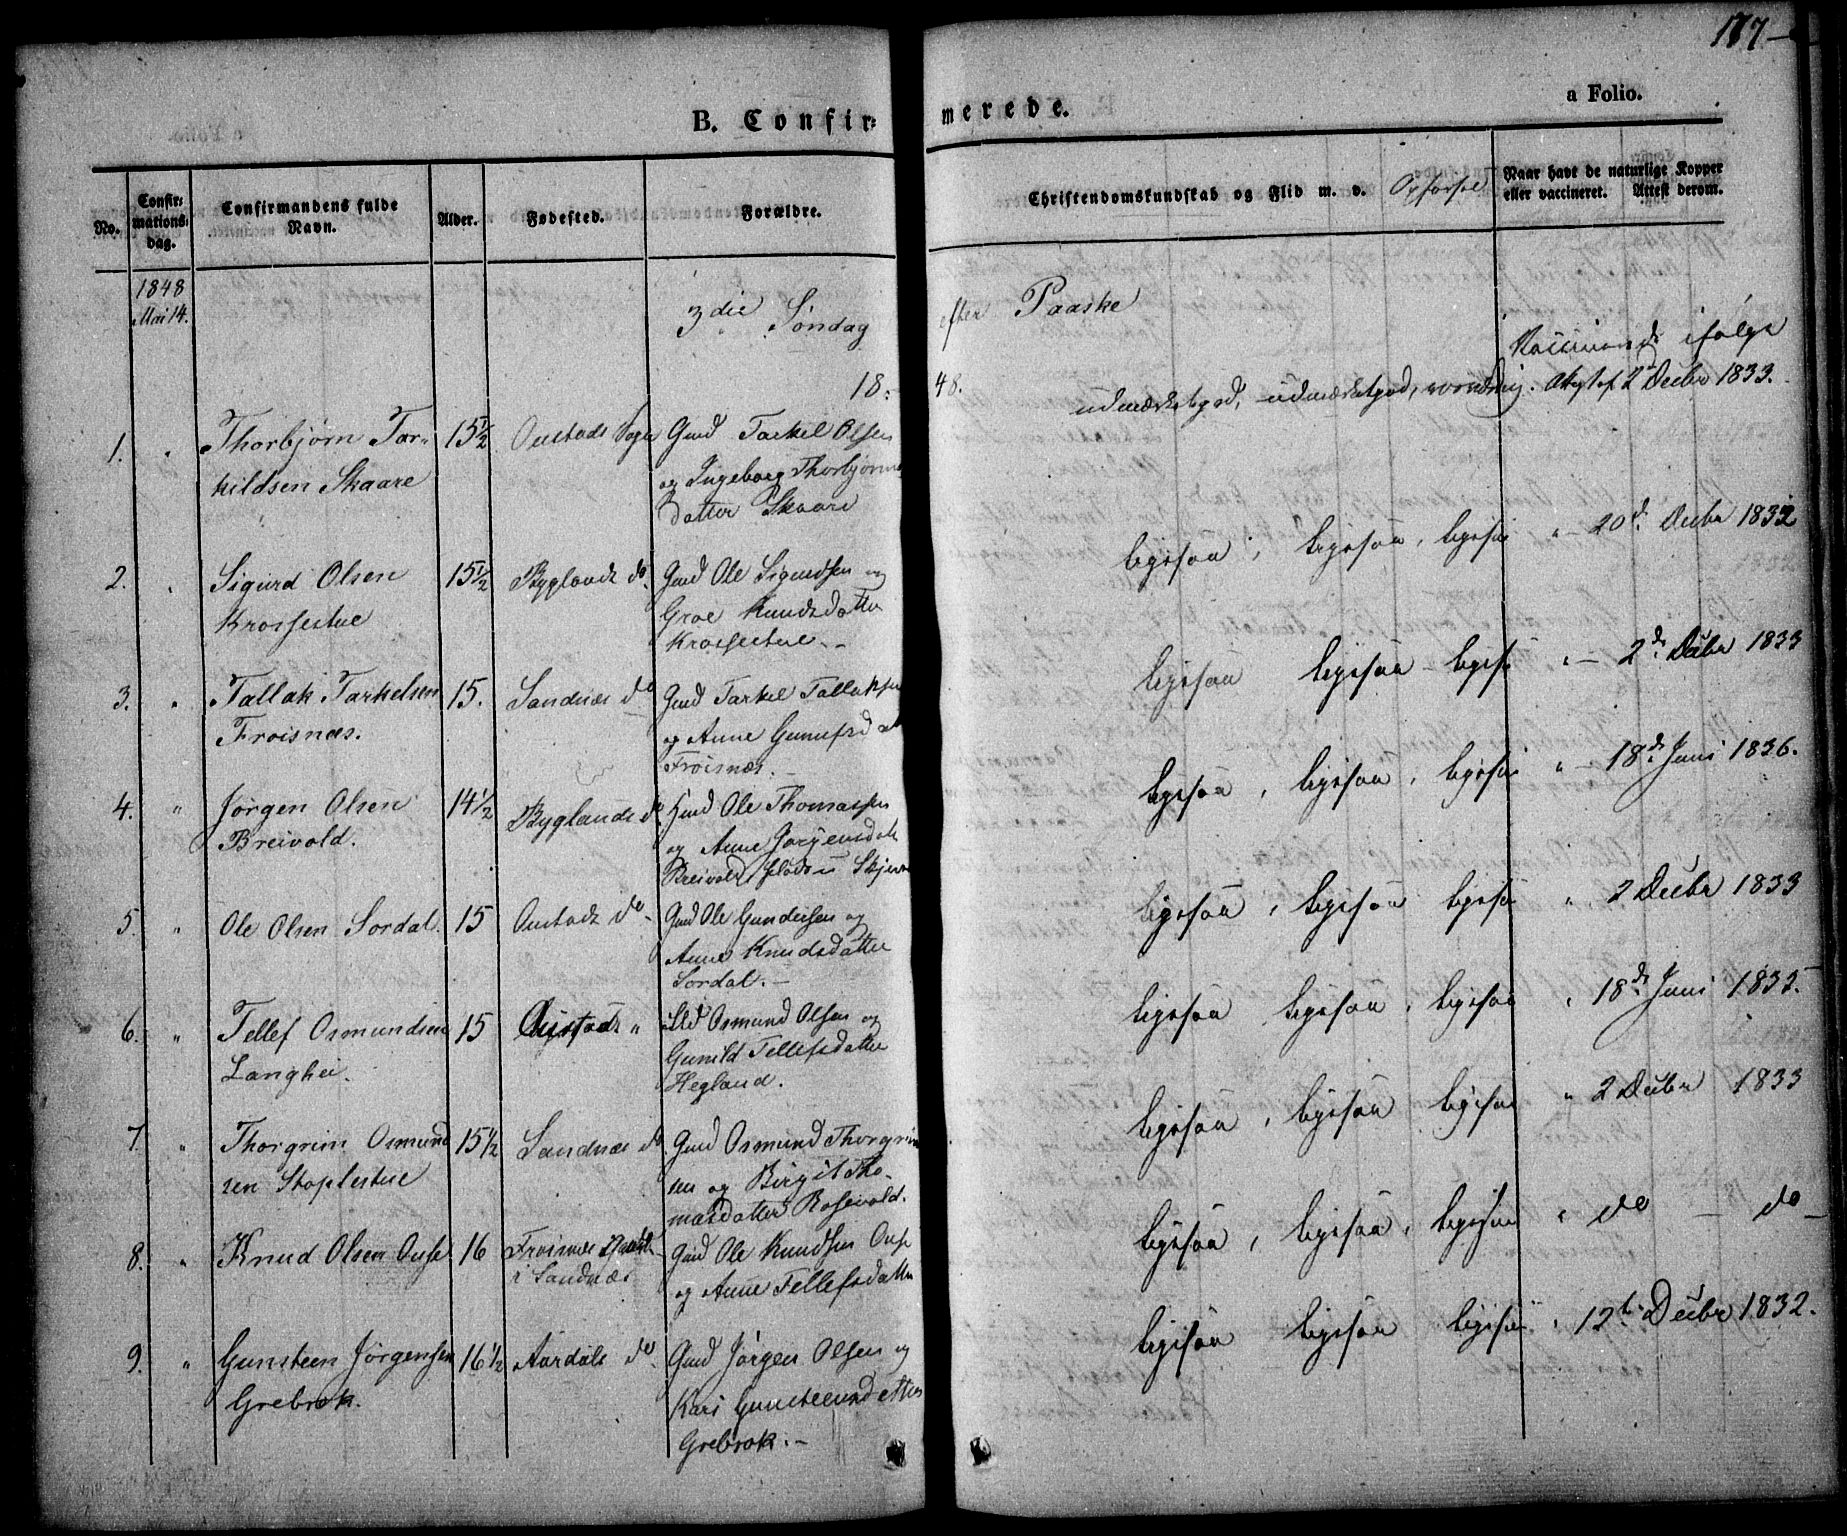 177
a Folio.
B. Confir- merede.
No.
Confir-
mations-
dag.
Confirmandens fulde
Navn.
Alder.
Fødested.
Forældre.
Christendomskundskab og Flid m. v.
Opførsel
Naar havt de naturlige Kopper
eller vaccineret. Attest derom.
1848
Mai 14.
3die Søndag efter Paaske
18 48.
1. " Thorbjørn Tar-
kildsen Skaare
15½
Oustads Sogn
Gmd Tarkel Olsen
og Ingeborg Thorbjørns
datter Skaare
udmærketgod, udmærketgod,
Vaccinerede ifølge
Attest af 2d Decbr 1833.
2. " Sigurd Olsen
Krossestue
15½
Byglands do
Gmd Ole Sigurdsen og
Groe Knudsdatter
Krossestue.-
ligesaa, ligesaa, ligesaa " - 20d. Decbr 1832
3. " Tallak Tarkelsen
Froisnæs.
15.
Sandnæs do
Gmd Tarkel Tallaksen
og Anne Gunufsdat
Frøisnæs.-
ligesaa ligesaa - ligesaa " - 2d. Decbr 1833
4. " Jørgen Olsen
Breivold.
14½
Byglands do
Hmd Ole Thomassen
og Anne Jørgensdatt
Breivold,
ligesaa, ligesaa, ligesaa " - 18d. Juni 1836.
5. " Ole Olsen Sordal.
15
Oustads do-
Gmd Ole Gundersen og
Anne Knudsdatter
Sordal.-
ligesaa, ligesaa ligesaa " 2 Decbr 1833
6. " Tellef Osmundsen
Langhei.
15
Oustads "
Osmund Olsen og
Gunild Tellefsdatter
Hegland.
ligesaa ligesaa, ligesaa " 18d. Juni 1835.
7. " Thorgrim Osmund
sen Stoplestue
15½
Sandnæs do
Gmd Osmund Thorgrim
sen og Birgit Tho-
masdatter Rosevold.
ligesaa, ligesaa ligesaa " 2 Decbr 1833
8. " Knud Olsen Ouse
16
Froisnæs
i Sandnæs
Gmd Ole Knudsen Ouse
og Anne Tellefsdatter
ligesaa, ligesaa, ligesaa " do - do -
9. " Gunsteen Jørgensen
Grebrok.
16½
Aardals do.
Gmd Jørgen Olsen og
Kari Gunsteensdatter
Grebrok.-
ligesaa ligesaa ligesaa " 12te Decbr 1832.